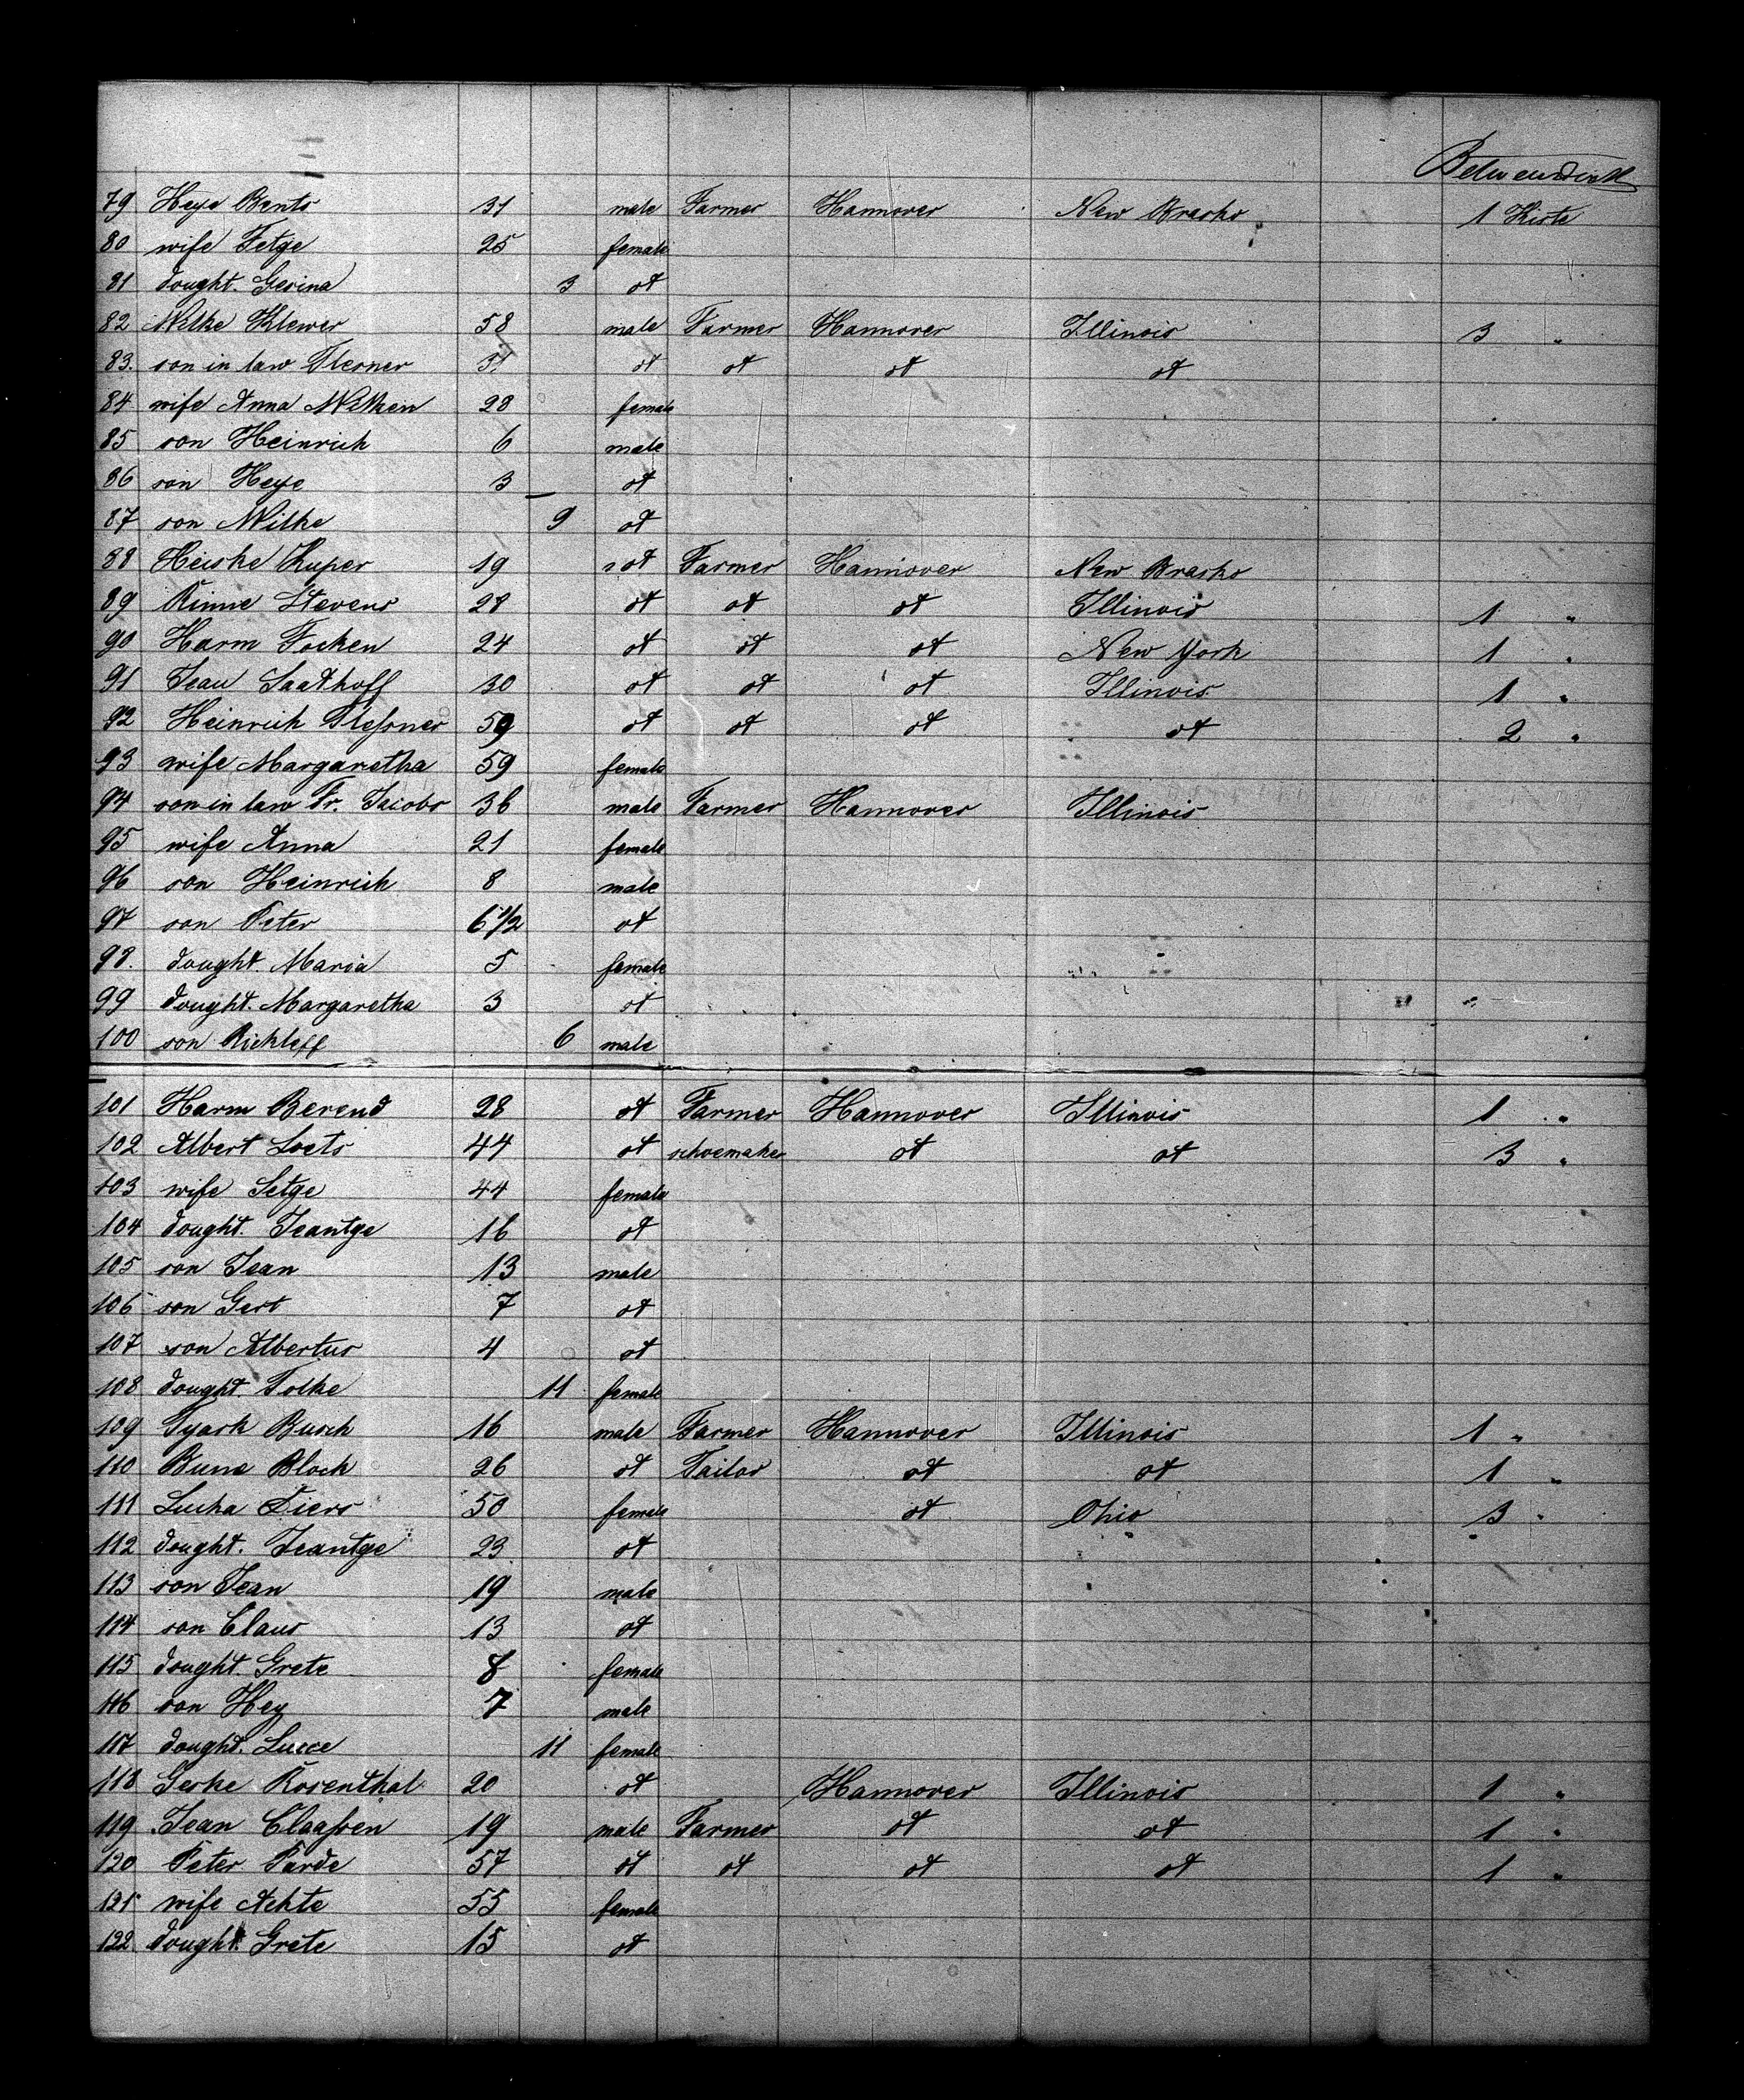 79 Heye Bents 31 male Farmer Hannover New Brasko 1 Kiste
80 wife Fetge 25 female
81 dought. Gesina 3 ot
82 Wilke Klewer 58 male Farmer Hannover Illinois 3 "
83. son in law Flesner 31 ot ot ot ot
84 wife Anna Wilken 28 female
85 son Heinrich 6 male
86 son Heye 3 ot
87 son Wilke 9 ot
88 Heiske Kuper 19 ot Farmer Hannover New Brasko
89 Rinne Stevens 28 ot ot ot Illinois 1 "
90 Harm Focken 24 ot ot ot New York 1 "
91 Jean Saathoff 30 ot ot ot Illinois 1 "
92 Heinrich Flessner 59 ot ot ot ot 2 "
93 wife Margaretha 59 female
94 son in law Fr. Jacobs 36 male Farmer Hannover Illinois
95 wife Anna 21 female
96 son Heinrich 8 male
97 son Peter 6 1/2 ot
98. dought. Maria 5 female
99 dought. Margaretha 3 ot
100 son Rickleff 6 male
101 Harm Berend 28 ot Farmer Hannover Illinois 1 "
102 Albert Loets 44 ot schoemaker ot ot 3 "
103 wife Setge 44 female
104 dought. Jeantge 16 ot
105 son Jean 13 male
106 son Gert 7 ot
107 son Albertus 4 ot
108 dought. Folke 11 female
109 Tyark Busch 16 male Farmer Hannover Illinois 1 "
110 Buna Block 26 ot Tailor ot ot 1 "
111 Lucha Siers 50 female ot Ohio 3 "
112 dought. Jeantge 23 ot
113 son Jean 19 male
114 son Claus 13 ot
115 dought. Grete 8 female
116 son Hey 7 male
117 dought. Lucce 11 female
118 Geske Rosenthal 20 ot Hannover Illinois 1 "
119 Jean Claassen 19 male Farmer ot ot 1 "
120 Peter Parde 57 ot ot ot ot 1 "
121 wife Achte 55 female
122 dought. Grete 15 ot